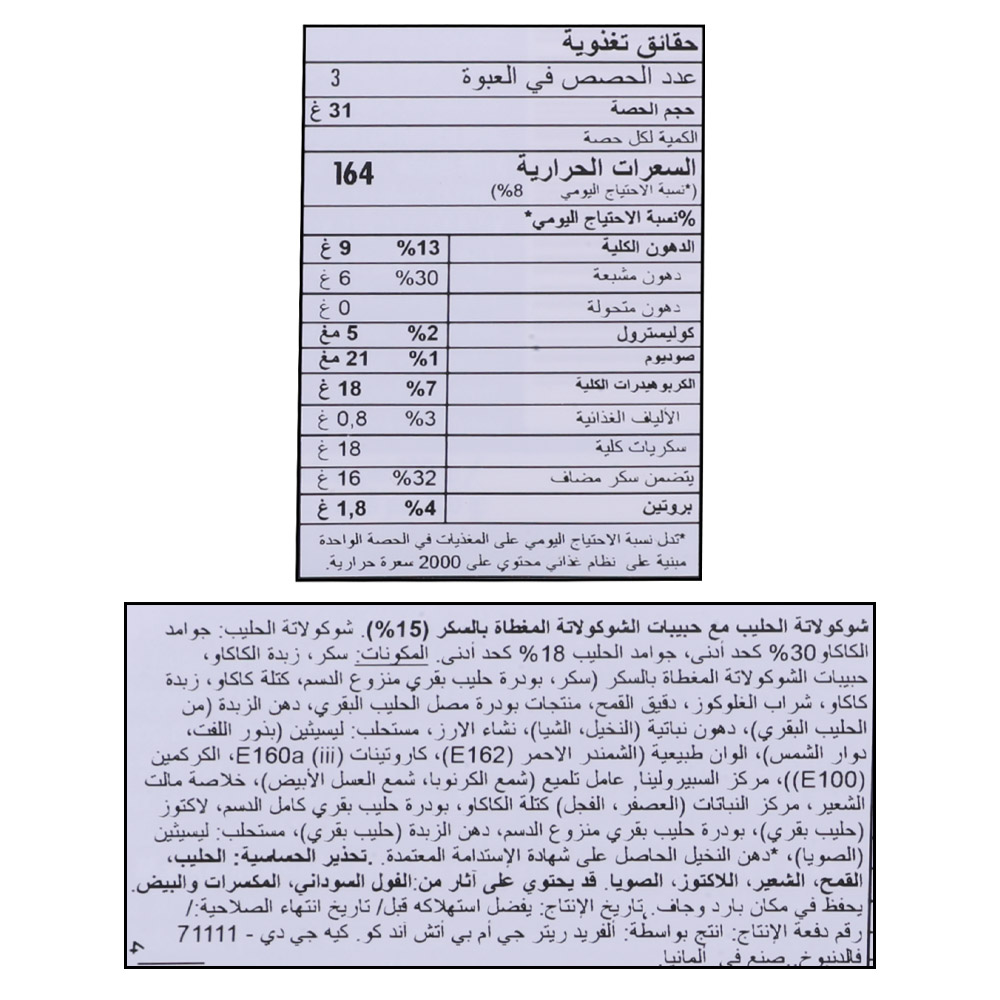 حقائق تغذوية
عدد الحصص في العبوة 3
حجم الحصة 31 غ
الكمية لكل حصة
السعرات الحرارية 164
(*نسبة الاحتياج اليومي 8%)
%نسبة الاحتياج اليومي*
الدهون الكلية 13% 9 غ
دهون مشبعة 30% 6 غ
دهون متحولة 0 غ
كوليسترول 2% 5 مغ
صوديوم 1% 21 مغ
الكربوهيدرات الكلية 7% 18 غ
الألياف الغذائية 3% 0,8 غ
سكريات كلية 18 غ
يتضمن سكر مضاف 32% 16 غ
بروتين 4% 1,8 غ
*تدل نسبة الاحتياج اليومي على المغذيات في الحصة الواحدة
مبنية على نظام غذائي محتوي على 2000 سعرة حرارية.
شوكولاتة الحليب مع حبيبات الشوكولاتة المغطاة بالسكر (15%). شوكولاتة الحليب: جوامد
الكاكاو 30% كحد أدنى، جوامد الحليب 18% كحد أدنى. المكونات: سكر، زبدة الكاكاو،
حبيبات الشوكولاتة المغطاة بالسكر (سكر، بودرة حليب بقري منزوع الدسم، كتلة كاكاو، زبدة
كاكاو، شراب الغلوكوز، دقيق القمح، منتجات بودرة مصل الحليب البقري، دهن الزبدة (من
الحليب البقري)، دهون نباتية (النخيل، الشيا)، نشاء الارز، مستحلب: ليسيثين (بذور اللفت،
دوار الشمس)، الوان طبيعية (الشمندر الاحمر (E162)، كاروتينات E160a (iii)، الكركمين
(E100))، مركز السبيرولينا, عامل تلميع (شمع الكرنوبا، شمع العسل الأبيض)، خلاصة مالت
الشعير ، مركز النباتات (العصفر، الفجل) كتلة الكاكاو، بودرة حليب بقري كامل الدسم، لاكتوز
(حليب بقري)، بودرة حليب بقري منزوع الدسم، دهن الزبدة (حليب بقري)، مستحلب: ليسيثين
(الصويا)، *دهن النخيل الحاصل على شهادة الإستدامة المعتمدة. .تحذير الحساسية: الحليب،
القمح، الشعير، اللاكتوز، الصويا. قد يحتوي على آثار من:الفول السوداني، المكسرات والبيض.
يحفظ في مكان بارد وجاف. تاريخ الإنتاج: يفضل استهلاكه قبل/ تاريخ انتهاء الصلاحية:/
رقم دفعة الإنتاج: انتج بواسطة: ألفريد ريتر جي أم بي أتش أند كو. كيه جي دي - 71111
فالدنبوخ.. صنع في ألمانيا
4